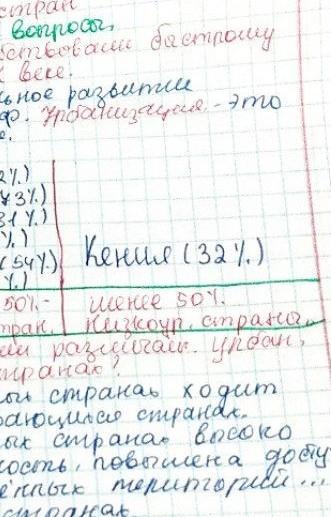 стран
вопросы.
бствовали бастрому
веке.
ьное развитии
Урбанизация - это
е.
2%)
73%)
31%)
%)
(54%) Кения (32%)
%)
50%- менее 50%.
тран. низкоур. страны.
ем различаем. урбан.
транах?
странах ходит
ающимся странах.
ых странах высоко
ность, повышена досту
ённых територий...
странах